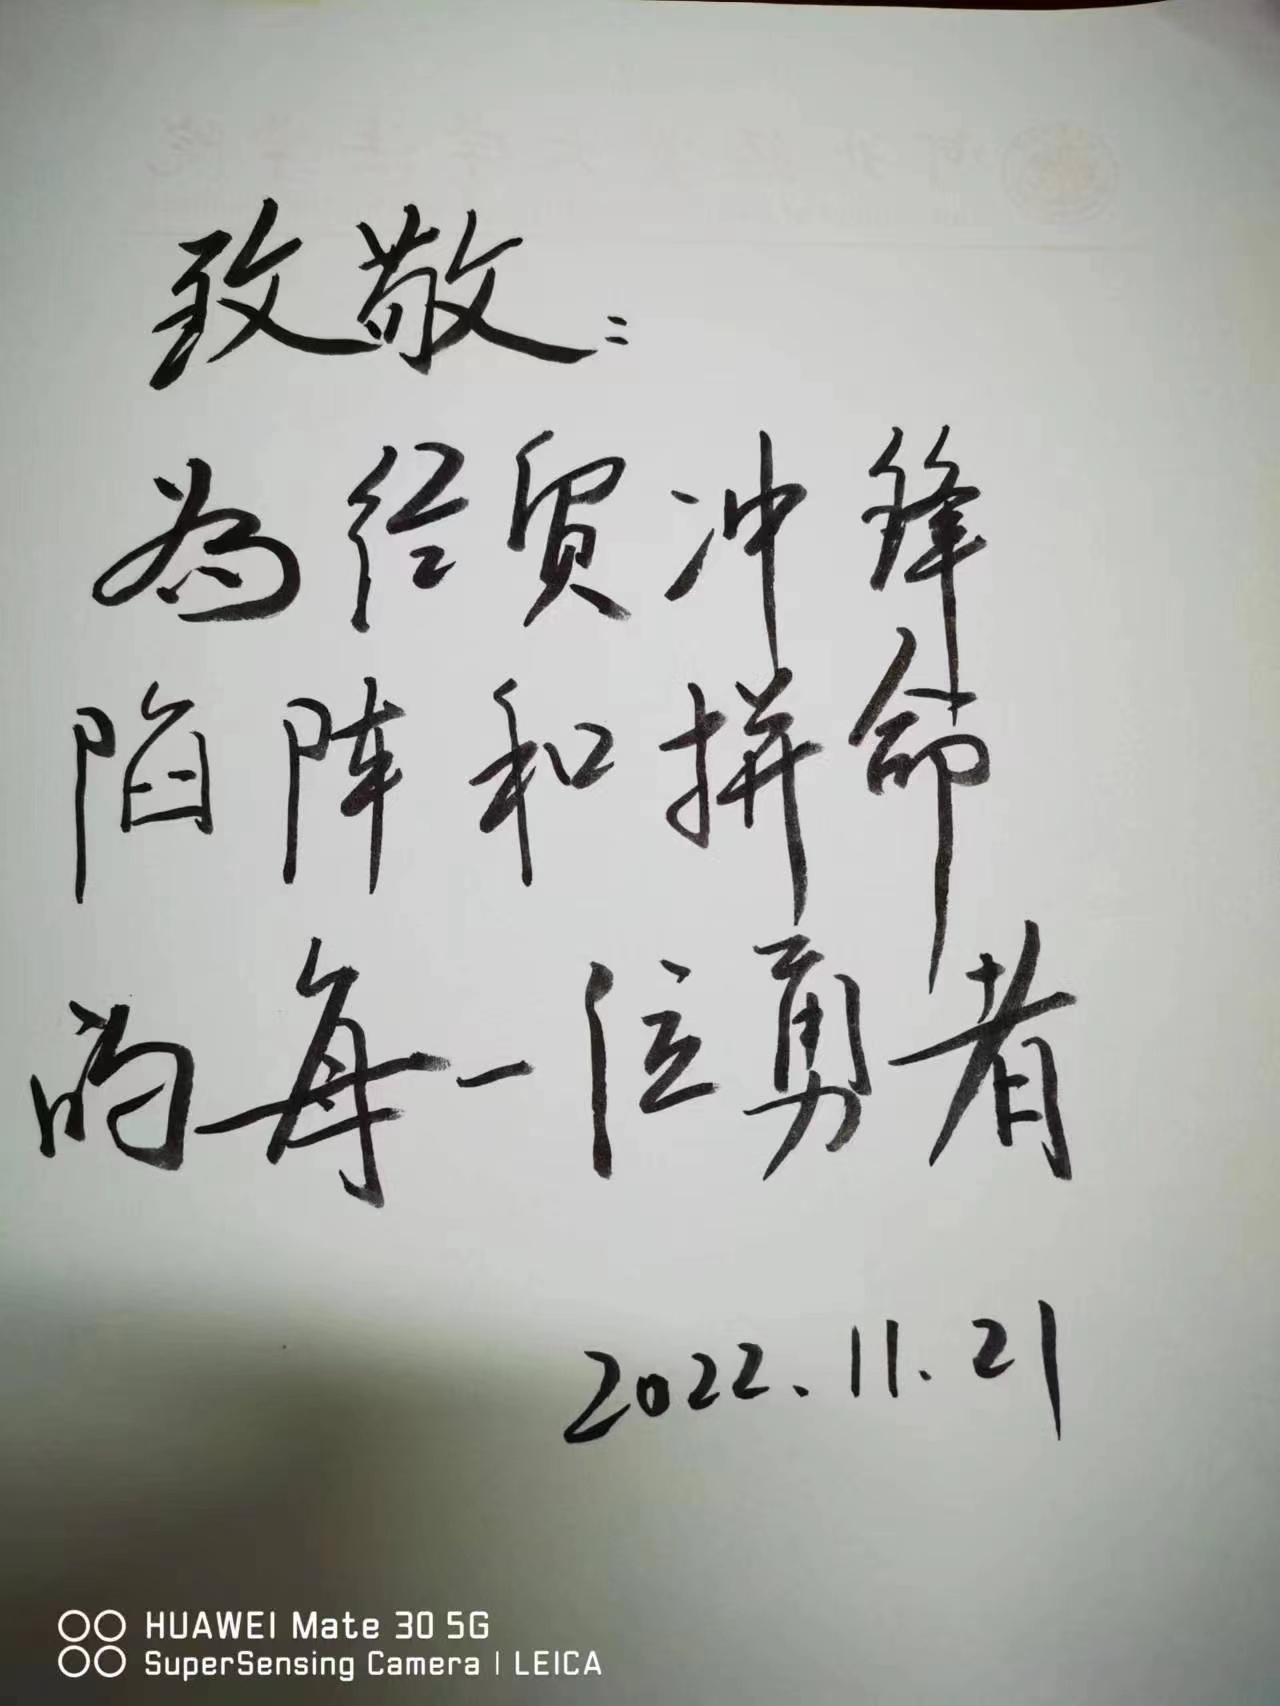 致敬:
为经贸冲锋
陷阵和拼命
的每一位勇者
2022.11.21
HUAWEI Mate 30 5G
SuperSensing Camera | LEICA